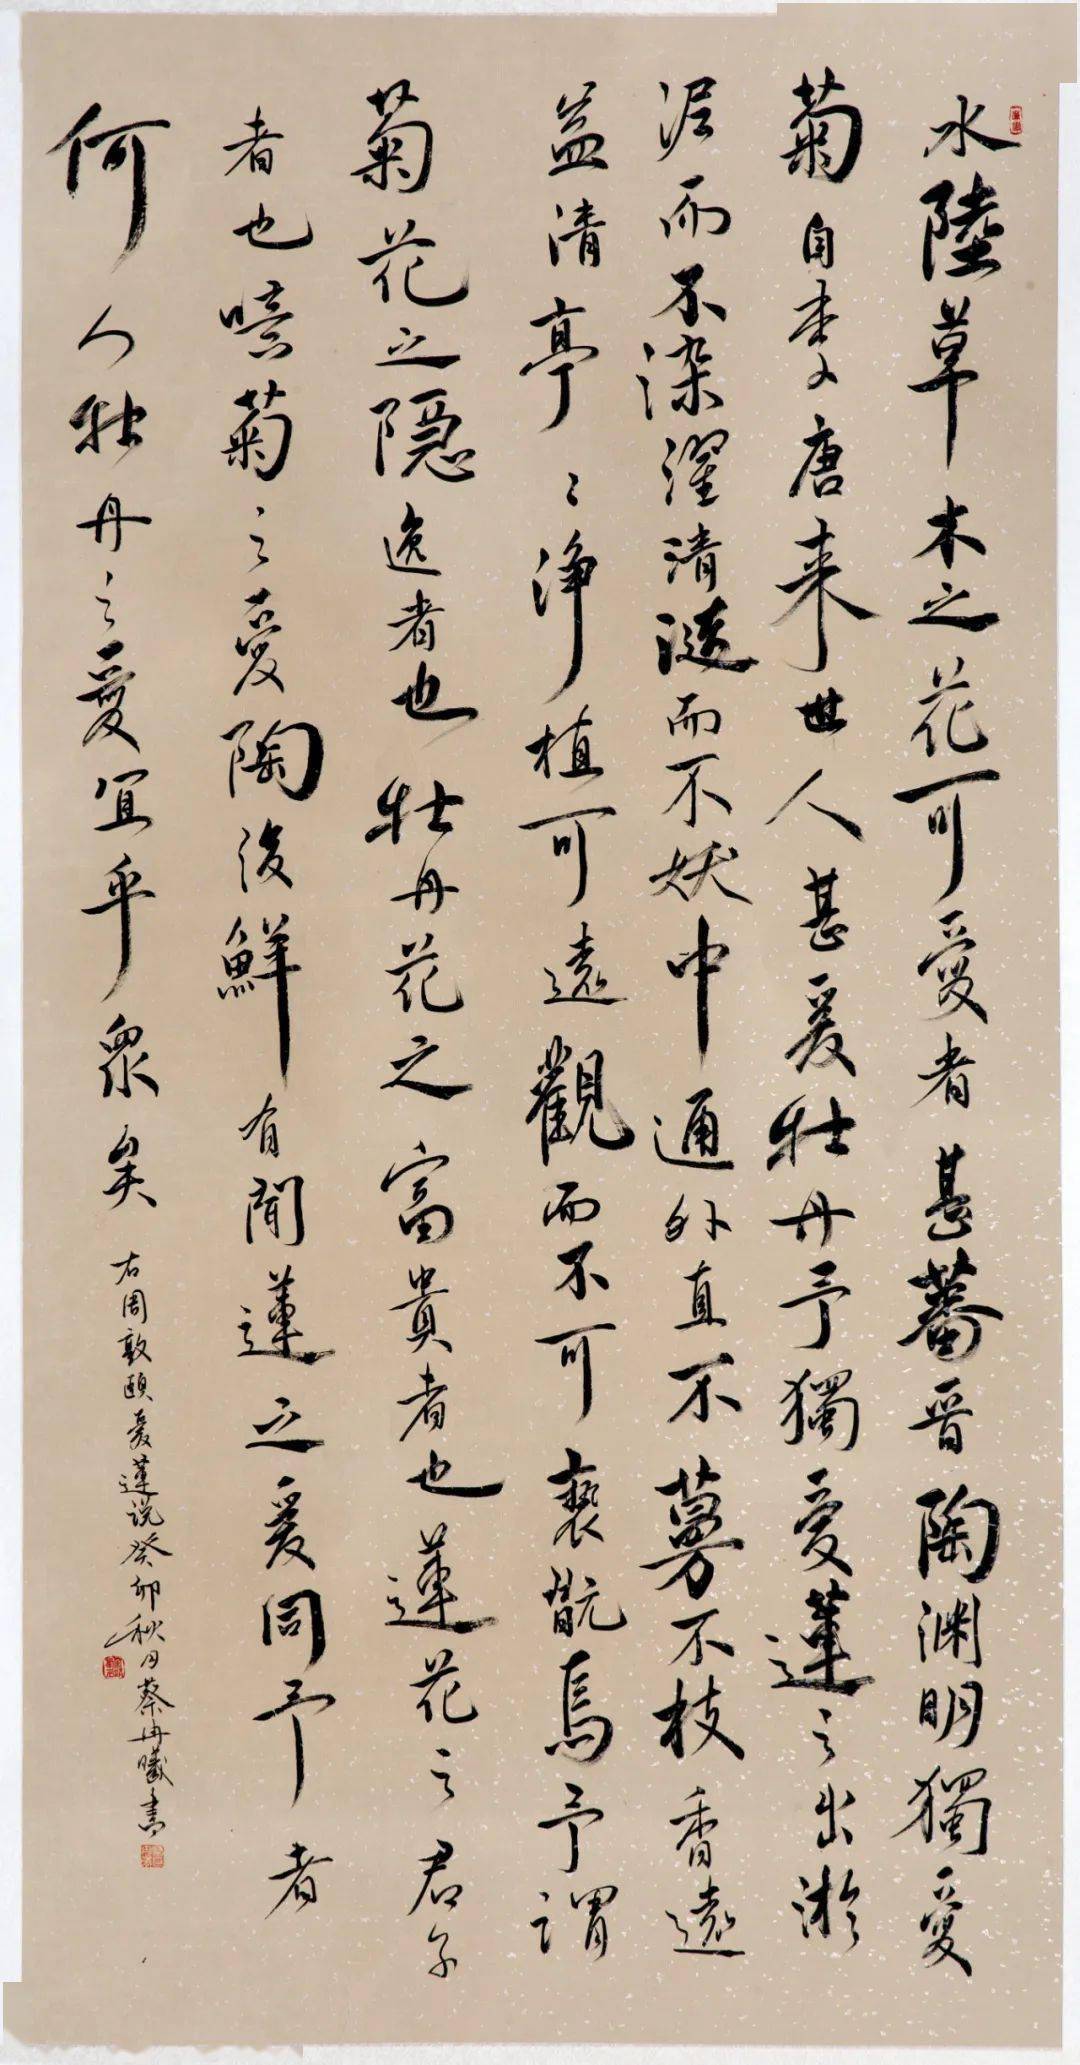 水陸草木之花可愛者甚蕃晉陶渊明獨愛
菊自李唐来世人甚爱牡丹予獨愛蓮之出淤
泥而不染濯清漣而不妖中通外直不蔓不枝香遠
益清亭〻淨植可遠觀而不可褻翫焉予謂
菊花之隱逸者也牡丹花之富貴者也蓮花之君子
者也噫菊之愛陶後鮮有聞蓮之爱同予者
何人牡丹之愛宜乎衆矣
右周敦頤爱蓮説癸卯秋月蔡冉曦書